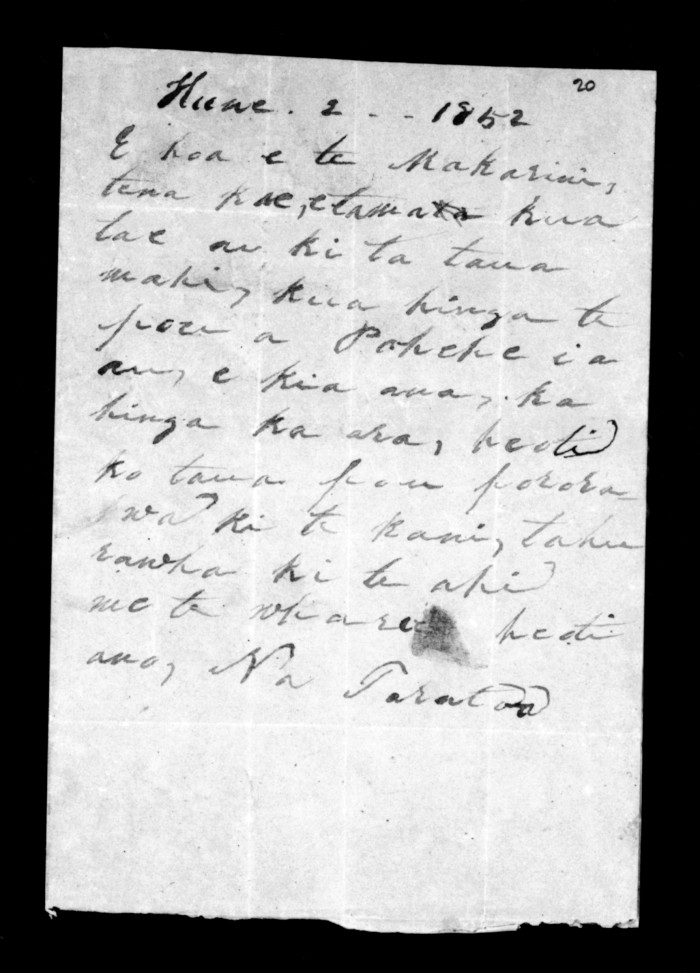 20
Hune. 2 - - 1852
E hoa e te Makarini,
tena koe, etama kua
tae au ki ta taua
mahi, kua hinga te
pou a Pohehe i a
au, e kia ana, ka
hinga ka ara, heoti
ko taua pou porora-
wa ki te kani, tahu
rawha ki te ahi
me te whare heoti
ano, Na Paratoa